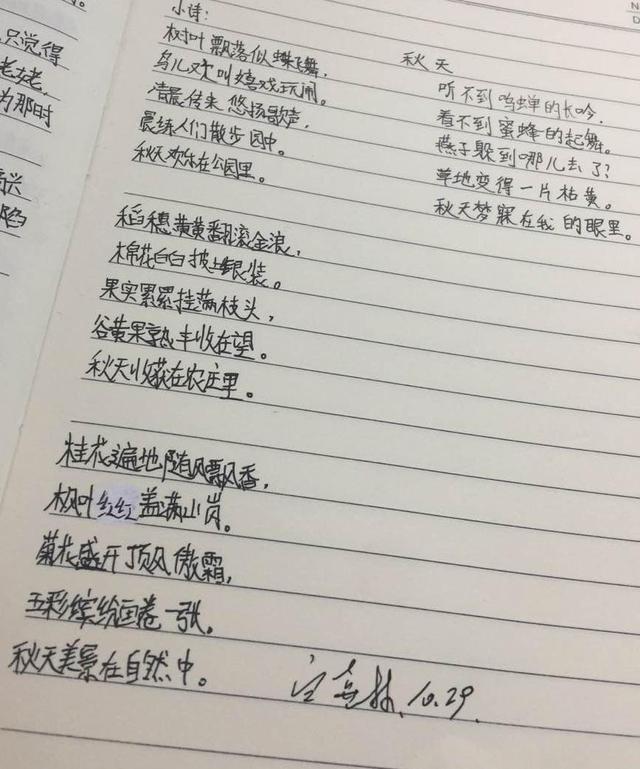 只觉得
老姥,
为那时
N
D
小诗:
秋天
树叶飘落似蝶飞舞,
鸟儿欢叫嬉戏玩闹。
清晨传来悠扬歌声,
晨练人们散步园中。
秋天欢乐在公园里。
听不到鸣蝉的长吟,
看不到蜜蜂的起舞。
燕子躲到哪儿去了?
草地变得一片枯黄。
秋天梦寐在我的眼里。
稻穗黄黄翻滚金浪,
棉花白白披上银装。
果实累累挂满枝头,
谷黄果熟丰收在望。
秋天收获在农庄里。
桂花遍地随风飘香,
枫叶红红盖满山岗。
菊花盛开顶风傲霜,
五彩缤纷画卷一张。
秋天美景在自然中。
10.29.